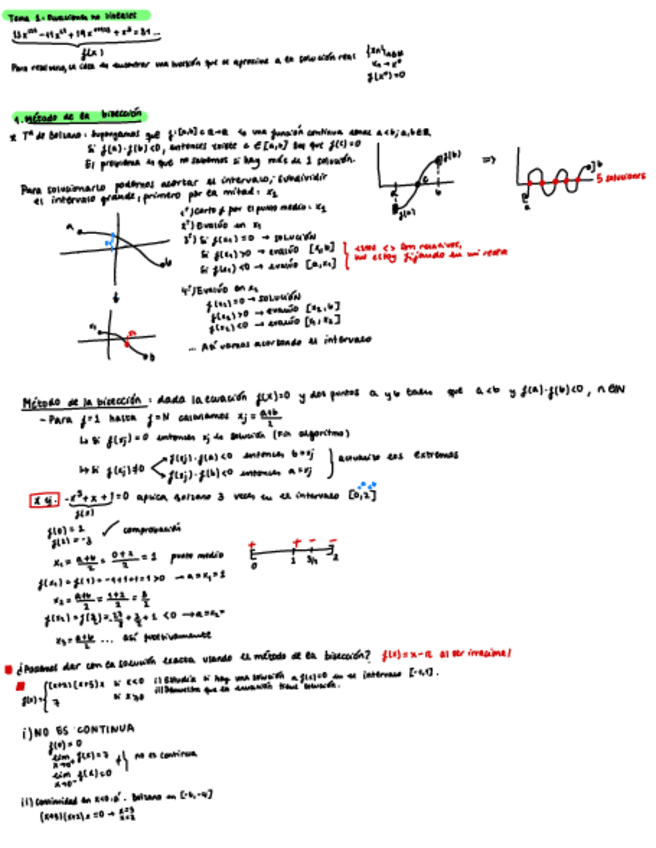 Tema 1: Ecuaciones no lineales
f(x)
Para resolverla, se trata de encontrar una sucesión que se aproxime a la solución real {xn}
xn → x*
f(x*)=0
1. Método de la bisección
Tª de Bolzano: supongamos que f:[a,b]⊂R→R es una función continua donde a<b; a,b∈R
Si f(a)·f(b)<0, entonces existe c∈[a,b] tal que f(c)=0
El problema es que no sabemos si hay más de 1 solución.
f(b)
a c b
f(a)
⇒
a
b
5 soluciones
Para solucionarlo podemos acortar el intervalo; subdividir
el intervalo grande, primero por la mitad: x1
1º) Corto f por el punto medio: x1
2º) Evalúo en x1
3º) Si f(x1)=0 → solución
Si f(x1)>0 → evalúo [x1,b]
Si f(x1)<0 → evalúo [a,x1]
estos <> son relativos,
me estoy fijando en mi recta
a
b
4º) Evalúo en x2
f(x2)=0 → solución
f(x2)>0 → evalúo [x2,b]
f(x2)<0 → evalúo [x1,x2]
... Así vamos acortando el intervalo
x1
b
Método de la bisección: dada la ecuación f(x)=0 y dos puntos a y b tales que a<b y f(a)·f(b)<0, n∈N
- Para j=1 hasta j=N calculamos xj = a+b/2
↳ Si f(xj)=0 entonces xj es solución (fin algoritmo)
↳ Si f(xj)≠0
f(xj)·f(a)<0 entonces b=xj
f(xj)·f(b)<0 entonces a=xj
actualizo los extremos
x ej. -x³+x+1=0 aplica Bolzano 3 veces en el intervalo [0,2]
f(x)
f(0)=1
✓ comprobación
x1 = a+b/2 = 0+2/2 = 1 punto medio
f(x1)=f(1)=-1+1+1=1>0 → a=x1=1
x2 = a+b/2 = 1+2/2 = 3/2
f(x2)=f(3/2)=-27/8+3/2+1 <0 → a=x2=
x3 = a+b/2 ... así sucesivamente
+ + - -
0 1 3/2 2
¿Podemos dar con la solución exacta usando el método de la bisección? f(x)=x-π al ser irracional
f(x)= (x+2)(x+5)x si x<0
7 si x≥0
i) Estudia si hay una solución a f(x)=0 en el intervalo [-1,1].
ii) Demuestra que la ecuación tiene solución.
i) NO ES CONTINUA
f(0)=0
lim f(x)=7
x→0⁺
lim f(x)=0
x→0⁻
≠ no es continua
ii) Continuidad en x<0 Bolzano en
(x+5)(x+2)x=0 →